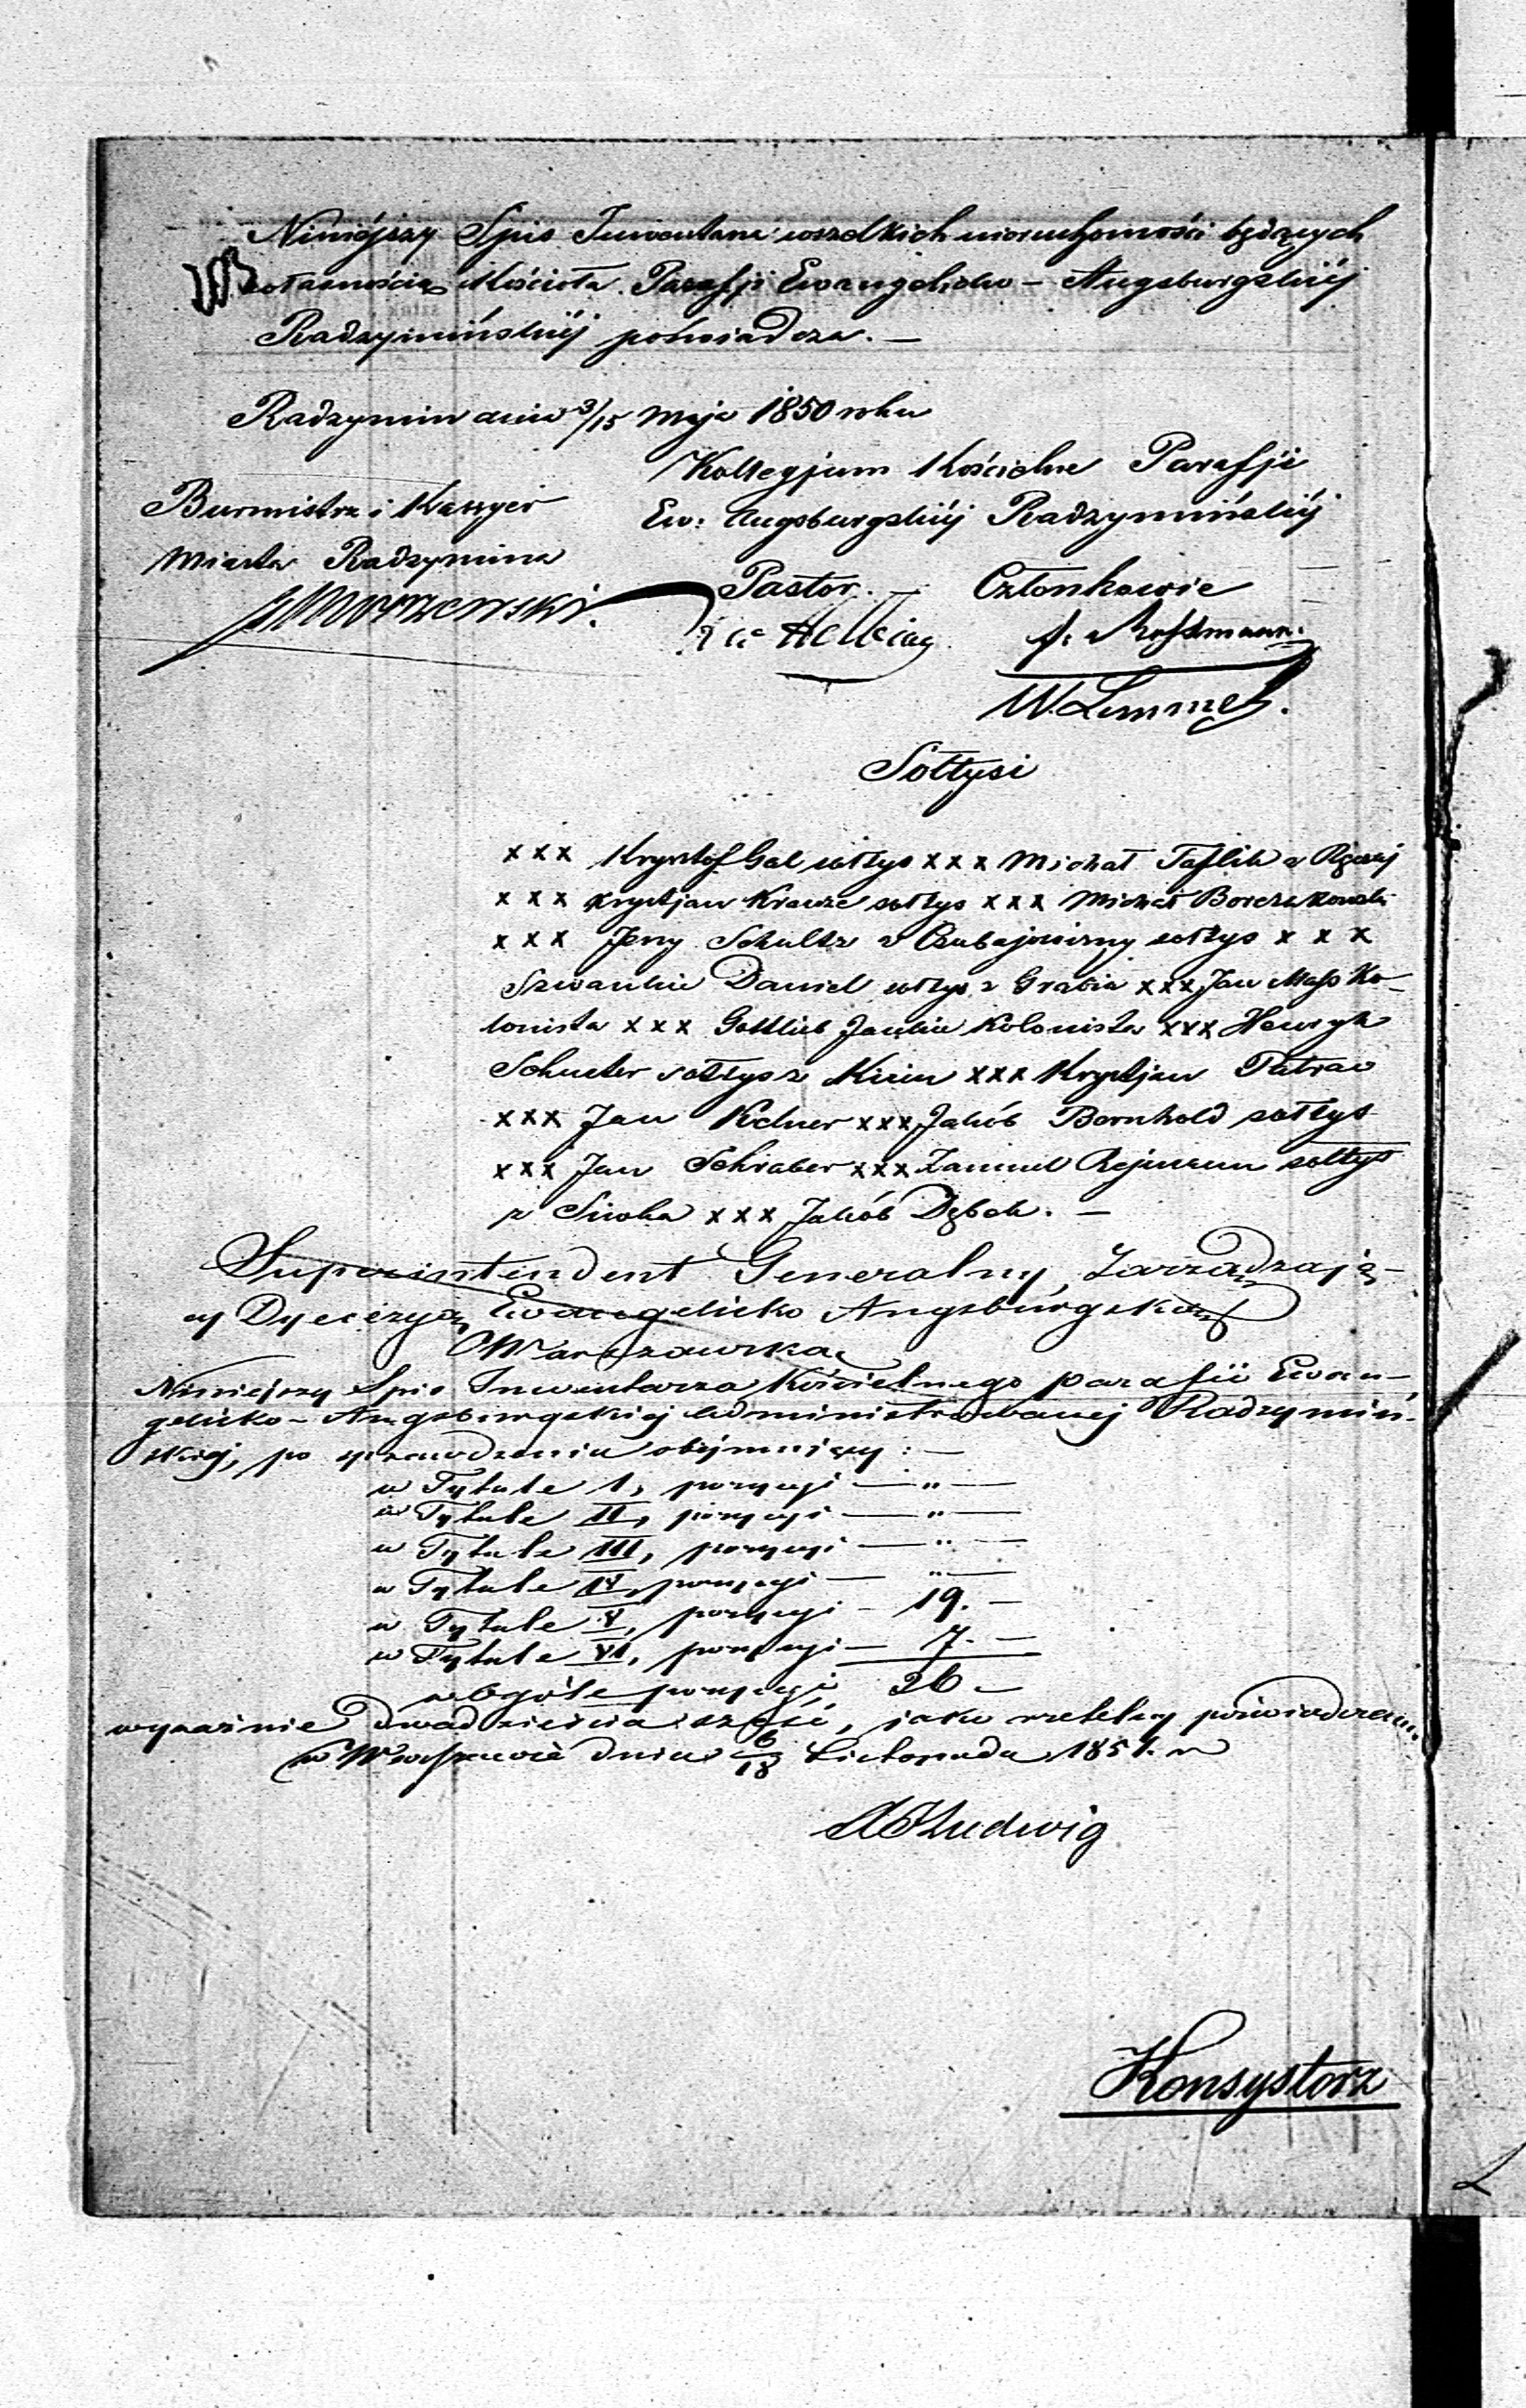 Niniejszy Spis Inwentarza wszelkich nieruchomości będących
własnością Kościoła Parafji Ewangelicko - Augsburgskiéj
Radzymińskiéj poświadcza. —
Radzymin dnia 3/15 Maja 1850 roku
Kollegjum Kościelne Parafji
Burmistrz i Kassyer
Ew: Augsburgskiéj Radzymińskiéj
Miasta Radzymina
Pastor. — Członkowie
Helbing
W. Lemmel.
Sołtysi
xxx Krysztof Gal sołtys xxx Michał Taflik z
xxx Krystjan Krauze sołtys xxx Michał Borczykowski
xxx Jerzy Schultz z sołtys x x x
Szwanke Daniel sołtys z Grabia xxx Jan Mass Ko-
lonista xxx Gottlieb Janke Kolonista xxx Henryk
sołtys z xxx Krystjan
xxx Jan Kelner xxx Jakób Bernhold sołtys
xxx Jan Schraber xxx Zamuel Rejmann sołtys
z xxx Jakób Dębek. —
Superintendent Generalny, Zarządzają-
cy Dyecezyą Ewangelicko Augsburgską
Warszawską
Niniejszy Spis Inwentarza Kościelnego parafii Ewan-
gelicko - Augsburgskiej administrowanej Radzymiń-
skiej, po sprawdzeniu obejmujący: —
w Tytule I, pozycyi — " —
w Tytule II, pozycyi — " —
w Tytule III, pozycyi — " —
w Tytule IV, pozycyi — " —
w Tytule V, pozycyi — 19. —
w Tytule VI, pozycyi — 7. —
w Ogóle pozycyi 26 —
wyraźnie dwadzieścia sześć, jako rzetelny poświadczam.
w Warszawie dnia 6/18 Listopada 1851. r.
Ludwig
Konsystorz